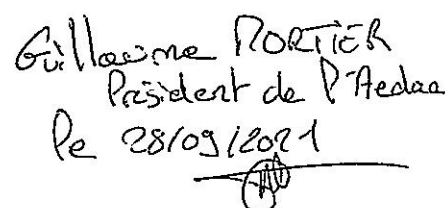 Guillaume MORTIER
Président de l'Aedaa
le 28/09/2021